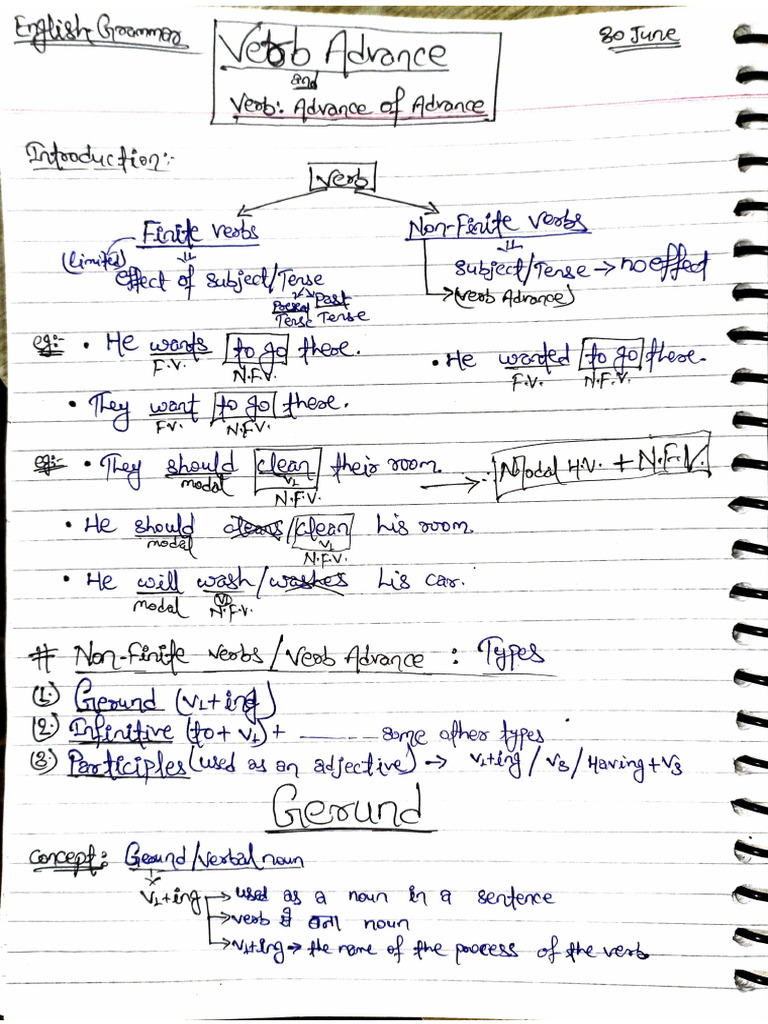 English Grammar
30 June
Verb Advance
and
Verb: Advance of Advance
Introduction:-
Verb
Finite verbs
Non-Finite verbs
(Limited)
effect of subject/Tense
Subject/Tense → no effect
Present Tense
Past Tense
(Verb Advance)
eg:- • He wants to go there.
F.V. N.F.V.
• He wanted to go there.
F.V. N.F.V.
• They want to go there.
F.V. N.F.V.
eg:- • They should clean their room. → Modal H.V. + N.F.V.
modal V1 N.F.V.
• He should cleans/clean his room
modal V1 N.F.V.
• He will wash/washes his car.
modal V1 N.F.V.
# Non-Finite verbs/Verb Advance : Types
(1) Gerund (V1+ing)
(2) Infinitive (to+V1) + ------ some other types
(3) Participles (used as an adjective) → V1+ing/V3/Having+V3
Gerund
Concept: Gerund/Verbal noun
V1+ing → used as a noun in a sentence
→ verb से बना noun
→ V1+ing → the name of the process of the verb